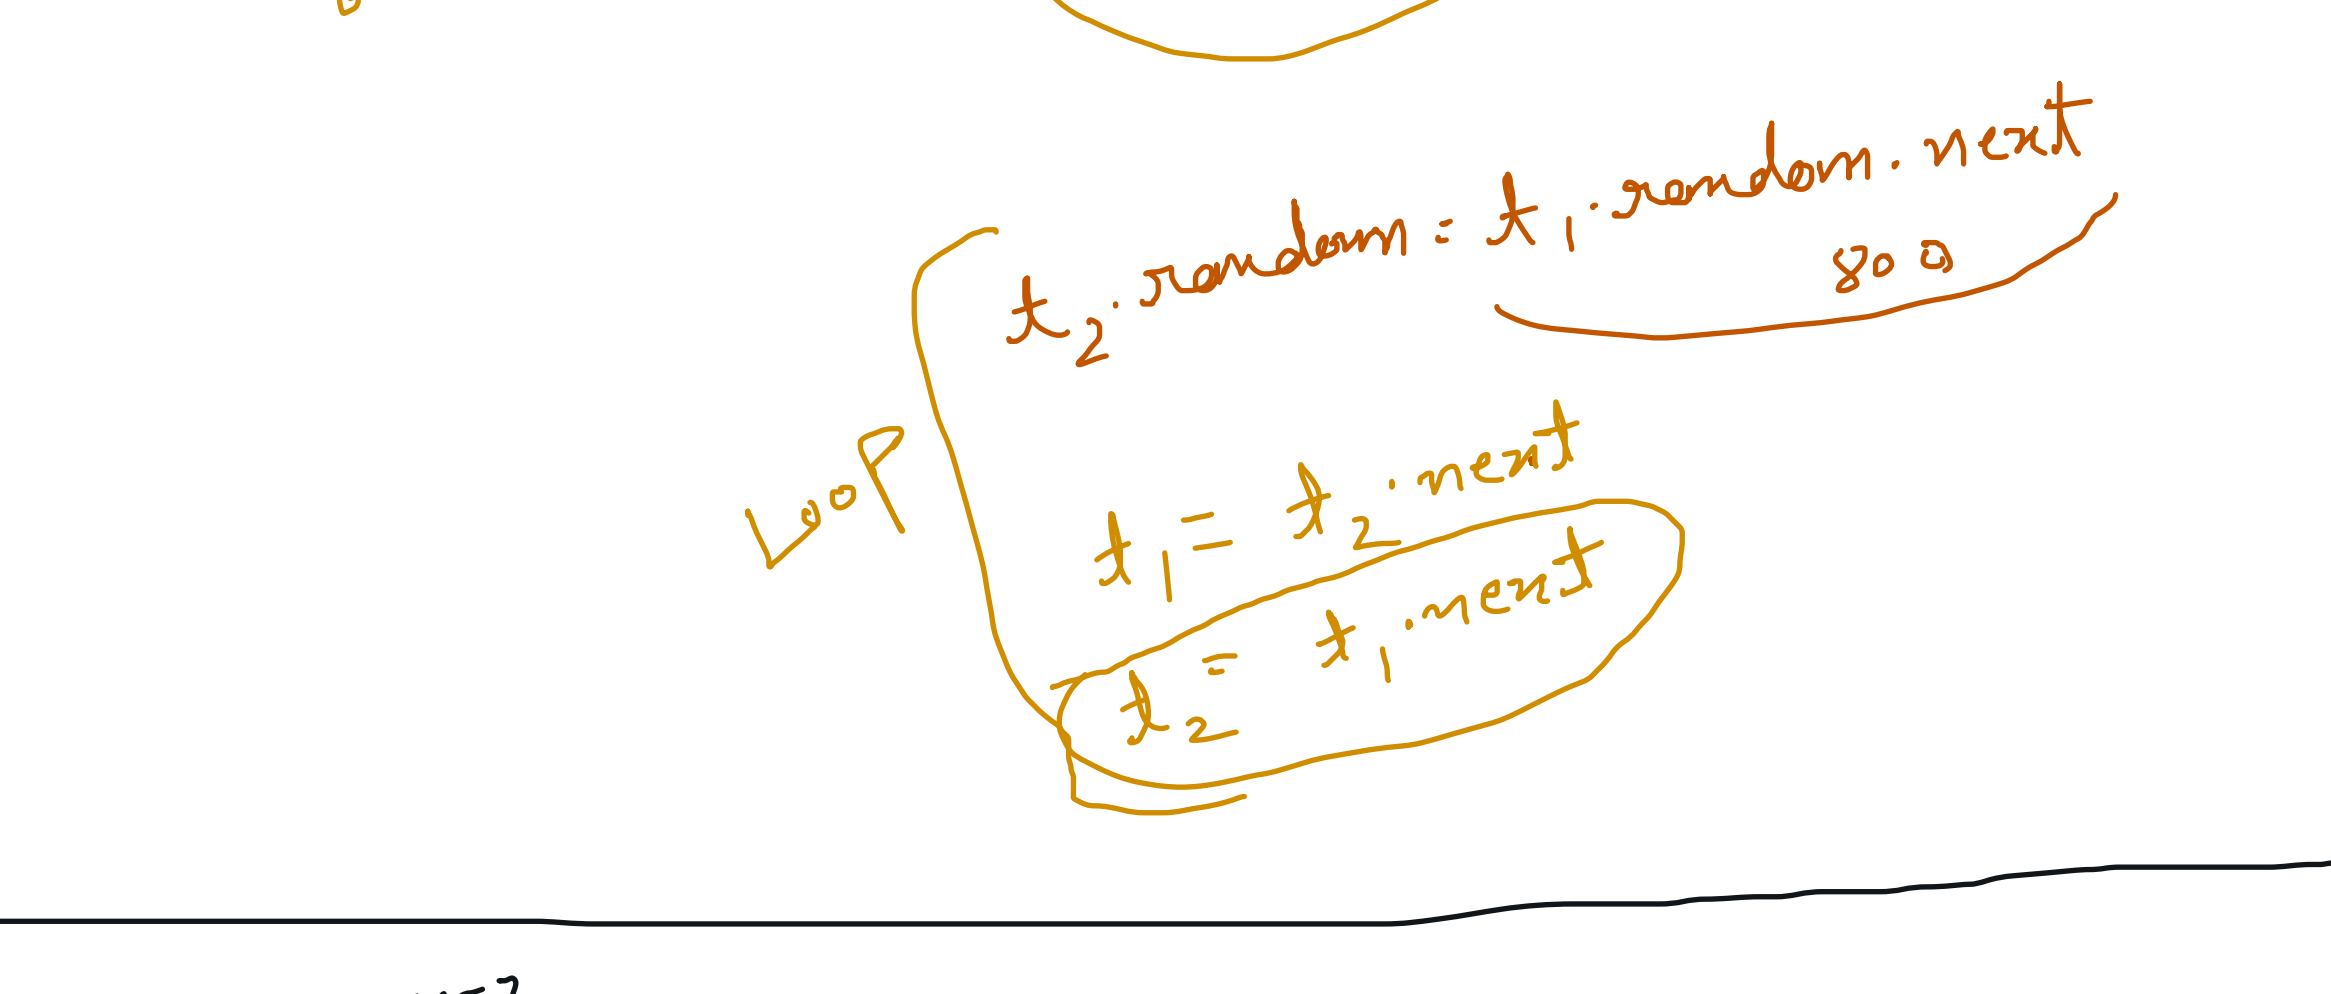 t2.random = t1.random.next
800
LOOP
t1 = t2.next
t2 = t1.next